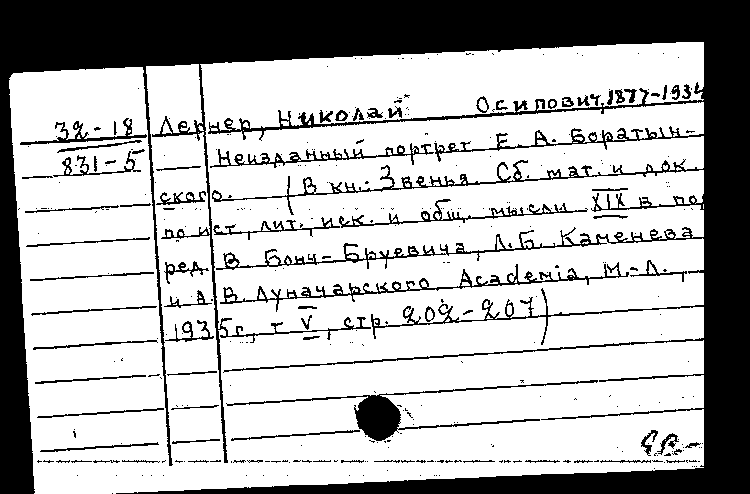 32-18 Лернер, Николай Осипович, 1877-1934
831-5 Неизданный портрет Е. А. Боратын-
ского. (В кн.: Звенья. Сб. мат. и док.
по ист., лит., иск. и общ. мысли XIX в. под
ред. В. Бонч-Бруевича, Л.Б. Каменева
и А.В. Луначарского. Academia, М.-Л.,
1935г., т. V, стр. 202-207).